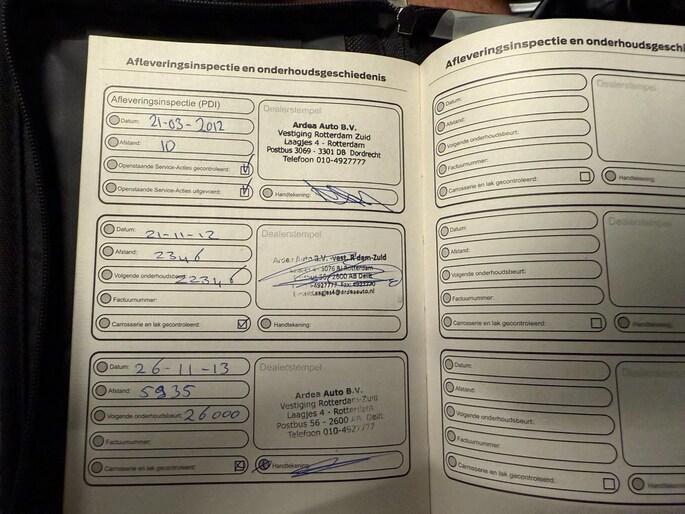 Afleveringsinspectie en onderhoudsgeschiedenis
Afleveringsinspectie (PDI)
Datum: 21-03-2012
Afstand: 10
Openstaande Service-Acties gecontroleerd:
Openstaande Service-Acties uitgevoerd:
Dealerstempel
Ardea Auto B.V.
Vestiging Rotterdam Zuid
Laagjes 4 - Rotterdam
Postbus 3069 - 3301 DB Dordrecht
Telefoon 010-4927777
Handtekening:
Datum: 21-11-12
Afstand: 2346
Volgende onderhoudsbeurt: 22346
Factuurnummer:
Carrosserie en lak gecontroleerd:
Dealerstempel
Ardea Auto B.V. vest. R'dam-Zuid
4 - 3076 BJ Rotterdam
56 - 2600 AB Delft
4927777 Fax:
laagjes4@ardeaauto.nl
Handtekening:
Datum: 26-11-13
Afstand: 5935
Volgende onderhoudsbeurt: 26000
Factuurnummer:
Carrosserie en lak gecontroleerd:
Dealerstempel
Ardea Auto B.V.
Vestiging Rotterdam-Zuid
Laagjes 4 - Rotterdam
Postbus 56 - 2600 AA Delft
Telefoon 010-4927777
Handtekening:
Afleveringsinspectie en onderhoudsgeschi
Datum:
Afstand:
Volgende onderhoudsbeurt:
Factuurnummer:
Carrosserie en lak gecontroleerd:
Dealerstempel
Handtekening:
Datum:
Afstand:
Volgende onderhoudsbeurt:
Factuurnummer:
Carrosserie en lak gecontroleerd:
Dealerstempel
Handtekening:
Datum:
Afstand:
Volgende onderhoudsbeurt:
Factuurnummer:
Carrosserie en lak gecontroleerd:
Dealerstempel
Handtekening: